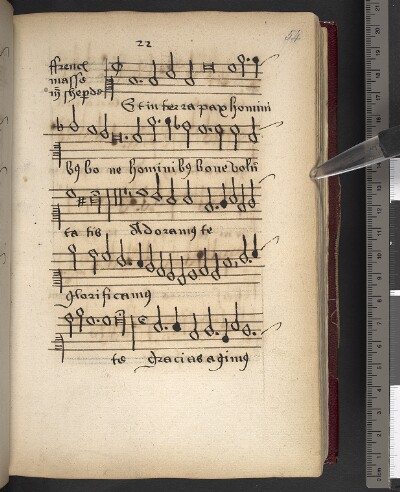 22
54
ffrench
masse
mr shepde
Et in terra pax homini
bꝰ bo ne homini bꝰ bone volu
ta tis Adoramꝰ te
glorificamꝰ
te gracias agimꝰ